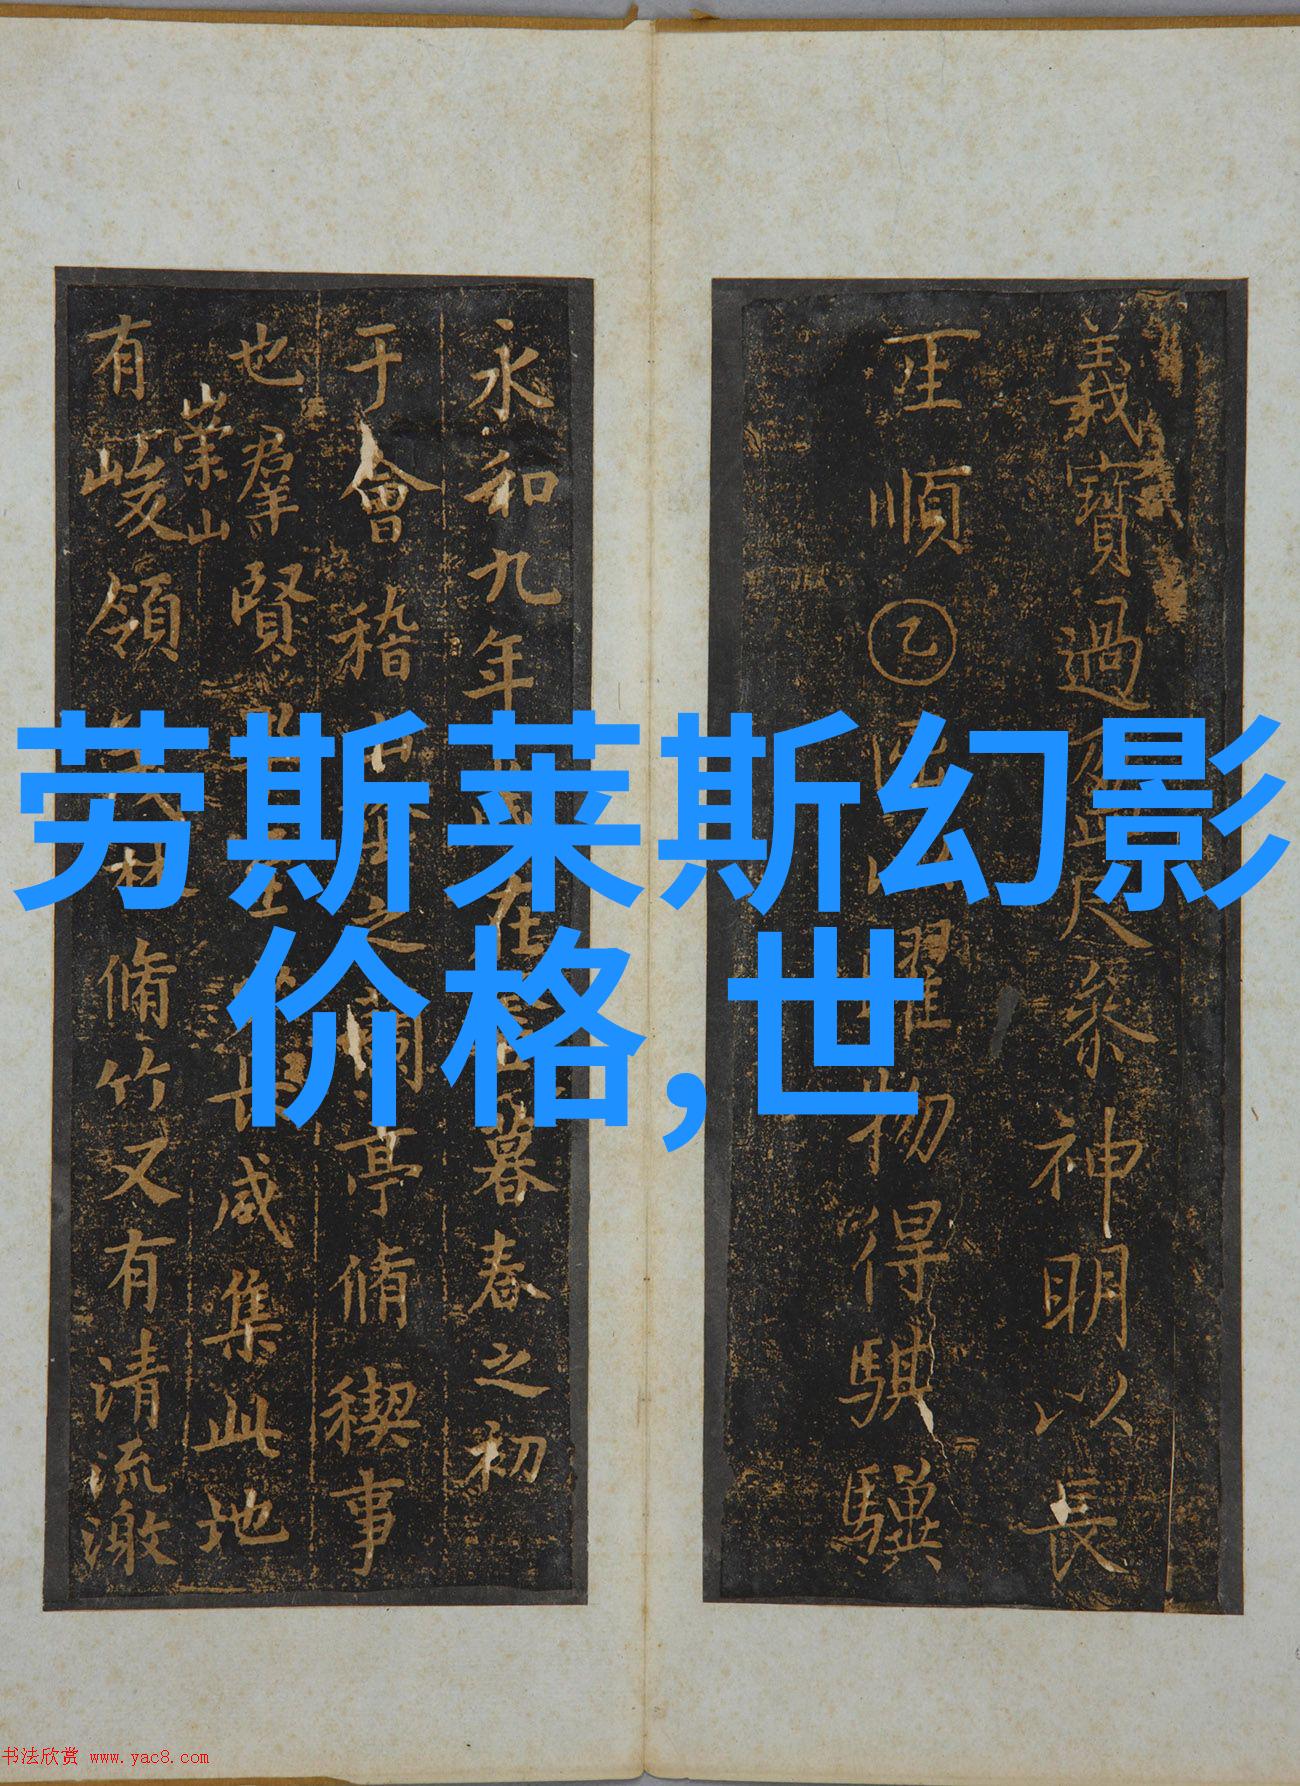 劳斯莱斯幻影
价格,世
義寶過盈尺叅神明以長
順乙耀物得騏驥
永和九年在暮春之初
于會稽山之蘭亭脩禊事
也羣賢至長咸集此地
崇山
有峻領茂林脩竹又有清流激
书法欣赏 www.yac8.com